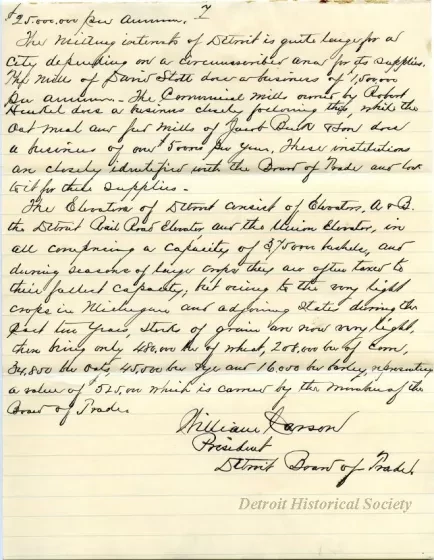 $25.000.000 per annum. 7
The Milling interests of Detroit is quite large for a
City depending on a circumscribed area for its supplies.
The Mills of David Stott does a business of $1,500,000
per annum - The Commercial Mills owned by Robert
Henkel does a business closely following this, while the
Oat Meal and feed Mills of Jacob Beck & Son does
a business of over $ per year. These institutions
are closely identified with the Board of Trade and look
to it for their supplies -
The Elevators of Detroit consist of Elevators A & B.
the Detroit Rail Road Elevator and the Union Elevator, in
all comprising a capacity of bushels, and
during seasons of large crops they are often taxed to
their fullest capacity, but owing to the very light
crops in Michigan and adjoining States during the
past two Years, stock of grain are now very light,
there being only 480,000 bu of wheat, 208,000 bu of corn,
34,800 bu oats, 45,000 bu rye and 16,000 bu barley, representing
a value of $525,000 which is carried by the Members of the
Board of Trade
William Carson
President
Detroit Board of Trade.
Detroit Historical Society